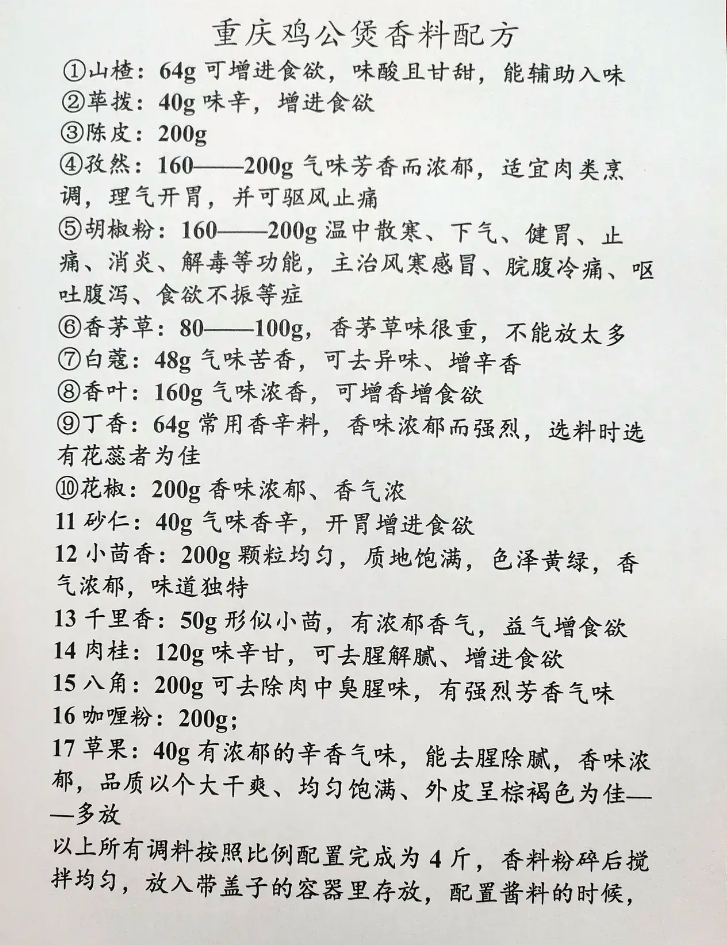 重庆鸡公煲香料配方
①山楂：64g 可增进食欲，味酸且甘甜，能辅助入味
②荜拨：40g 味辛，增进食欲
③陈皮：200g
④孜然：160——200g 气味芳香而浓郁，适宜肉类烹
调，理气开胃，并可驱风止痛
⑤胡椒粉：160——200g 温中散寒、下气、健胃、止
痛、消炎、解毒等功能，主治风寒感冒、脘腹冷痛、呕
吐腹泻、食欲不振等症
⑥香茅草：80——100g，香茅草味很重，不能放太多
⑦白蔻：48g 气味苦香，可去异味、增辛香
⑧香叶：160g 气味浓香，可增香增食欲
⑨丁香：64g 常用香辛料，香味浓郁而强烈，选料时选
有花蕊者为佳
⑩花椒：200g 香味浓郁、香气浓
11 砂仁：40g 气味香辛，开胃增进食欲
12 小茴香：200g 颗粒均匀，质地饱满，色泽黄绿，香
气浓郁，味道独特
13 千里香：50g 形似小茴，有浓郁香气，益气增食欲
14 肉桂：120g 味辛甘，可去腥解腻、增进食欲
15 八角：200g 可去除肉中臭腥味，有强烈芳香气味
16 咖喱粉：200g；
17 草果：40g 有浓郁的辛香气味，能去腥除腻，香味浓
郁，品质以个大干爽、均匀饱满、外皮呈棕褐色为佳—
—多放
以上所有调料按照比例配置完成为 4 斤，香料粉碎后搅
拌均匀，放入带盖子的容器里存放，配置酱料的时候，